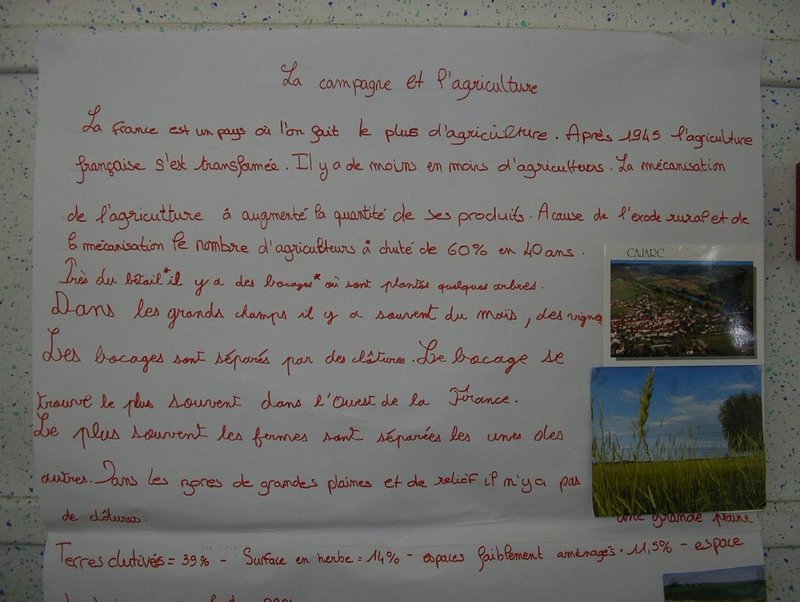 La campagne et l'agriculture
La France est un pays où l'on fait le plus d'agriculture. Après 1945 l'agriculture
française s'est transformée. Il y a de moins en moins d'agriculteurs. La mécanisation
de l'agriculture à augmenté la quantité de ses produits. A cause de l'exode rural et de
la mécanisation le nombre d'agriculteurs à chuté de 60% en 40 ans.
CAJARC
Près du bétail* il y a des bocages* où sont plantés quelques arbres.
Dans les grands champs il y a souvent du maïs, des vignes
Les bocages sont séparés par des clôtures. Le bocage se
trouve le plus souvent dans l'Ouest de la France.
Le plus souvent les fermes sont séparées les unes des
autres. Dans les zones de grandes plaines et de relief il n'y a pas
de clôtures.
une grande plaine
Terres cultivés = 39% - Surface en herbe = 14% - espaces faiblement aménagés = 11,5% - espace